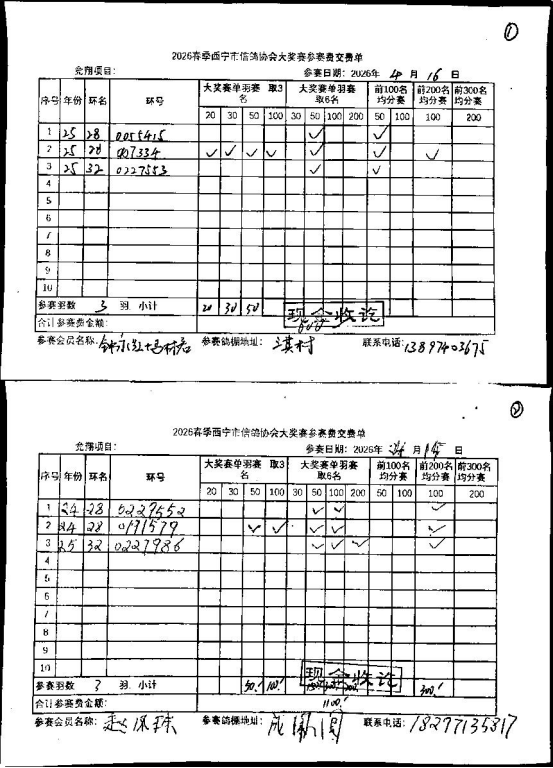 ①
2026春季西宁市信鸽协会大奖赛参赛费交费单
竞翔项目： 参赛日期：2026年 4 月 16 日
序号 年份 环名 环号 大奖赛单羽赛 取3名 大奖赛单羽赛 取6名 前100名均分赛 前200名均分赛 前300名均分赛
20 30 50 100 30 50 100 200 50 100 100 200
1 25 28 0055415 ✓ ✓
2 25 28 007334 ✓ ✓ ✓ ✓ ✓ ✓ ✓
3 25 32 0227553 ✓ ✓
4
5
6
7
8
9
10
参赛羽数 3 羽 小计 20 30 50 现金收讫
合计参赛费金额： 600
参赛会员名称： 参赛鸽棚地址： 淇村 联系电话：13897403675
②
2026春季西宁市信鸽协会大奖赛参赛费交费单
竞翔项目： 参赛日期：2026年 月 日
序号 年份 环名 环号 大奖赛单羽赛 取3名 大奖赛单羽赛 取6名 前100名均分赛 前200名均分赛 前300名均分赛
20 30 50 100 30 50 100 200 50 100 100 200
1 24 28 0227552 ✓ ✓ ✓
2 24 28 0171579 ✓ ✓ ✓ ✓ ✓
3 25 32 0227986 ✓ ✓ ✓ ✓
4
5
6
7
8
9
10
参赛羽数 3 羽 小计 50! 100! 现金收讫 300!
合计参赛费金额： 1100!
参赛会员名称： 参赛鸽棚地址： 联系电话：18297135817